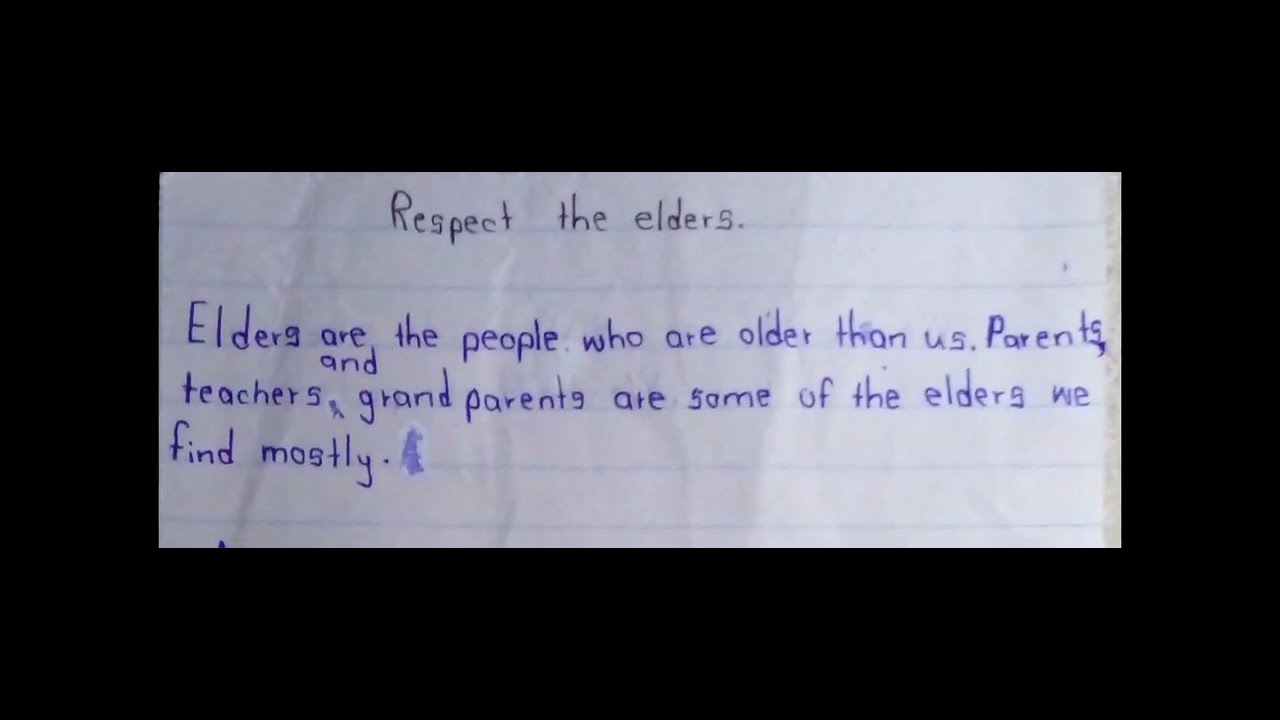 Respect the elders.
Elders are the people who are older than us. Parents,
and
teachers, grand parents are some of the elders we
find mostly.